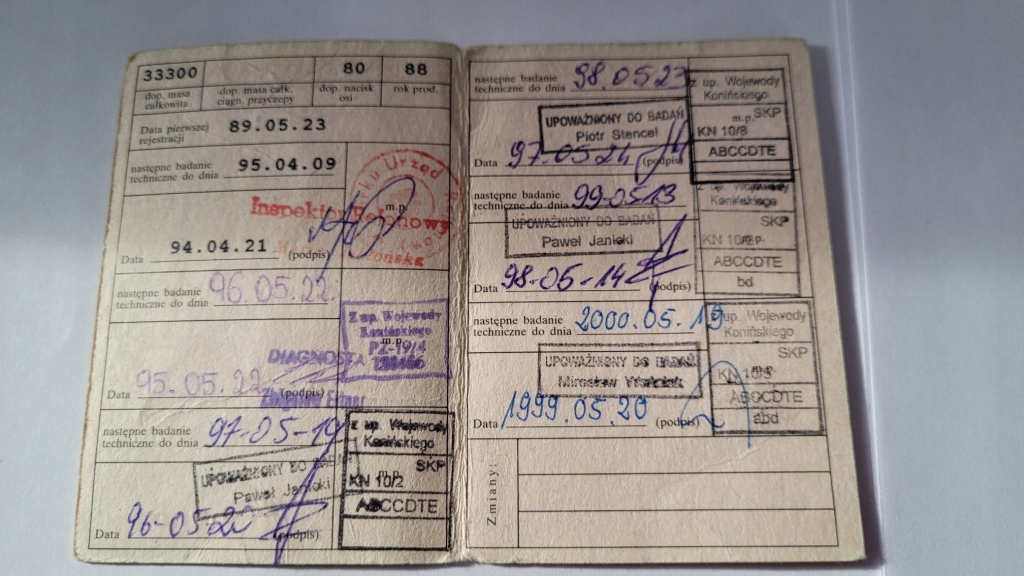 33300
80
88
dop. masa całkowita
dop. masa całk. ciągn. przyczepy
dop. nacisk osi
rok prod.
Data pierwszej rejestracji 89.05.23
następne badanie techniczne do dnia 95.04.09
Urząd R
Inspektor Rejonowy
m.p.
Data 94.04.21 (podpis)
następne badanie techniczne do dnia 96.05.22.
Z up. Wojewody
Konińskiego
m.p.
DIAGNOSTA
Data 95.05.22 (podpis)
następne badanie techniczne do dnia 97-05-19
z up. Wojewody
Konińskiego
SKP
m.p.
KN 10/2
ABCCDTE
UPOWAŻNIONY DO BADAŃ
Paweł Janicki
Data 96-05-20 (podpis)
następne badanie techniczne do dnia 98.05.23
z up. Wojewody
Konińskiego
m.p. SKP
KN 10/8
ABCCDTE
UPOWAŻNIONY DO BADAŃ
Piotr Stencel
Data 97.05.24 (podpis)
następne badanie techniczne do dnia 99-05-13
Wojewody
Konińskiego
SKP
KN m.p.
ABCCDTE
bd
UPOWAŻNIONY DO BADAŃ
Paweł Janicki
Data 98-05-14 (podpis)
następne badanie techniczne do dnia 2000.05.19
z up. Wojewody
Konińskiego
SKP
KN
ABCCDTE
abd
UPOWAŻNIONY DO BADAŃ
Mirosław
Data 1999.05.20 (podpis)
Zmiany: